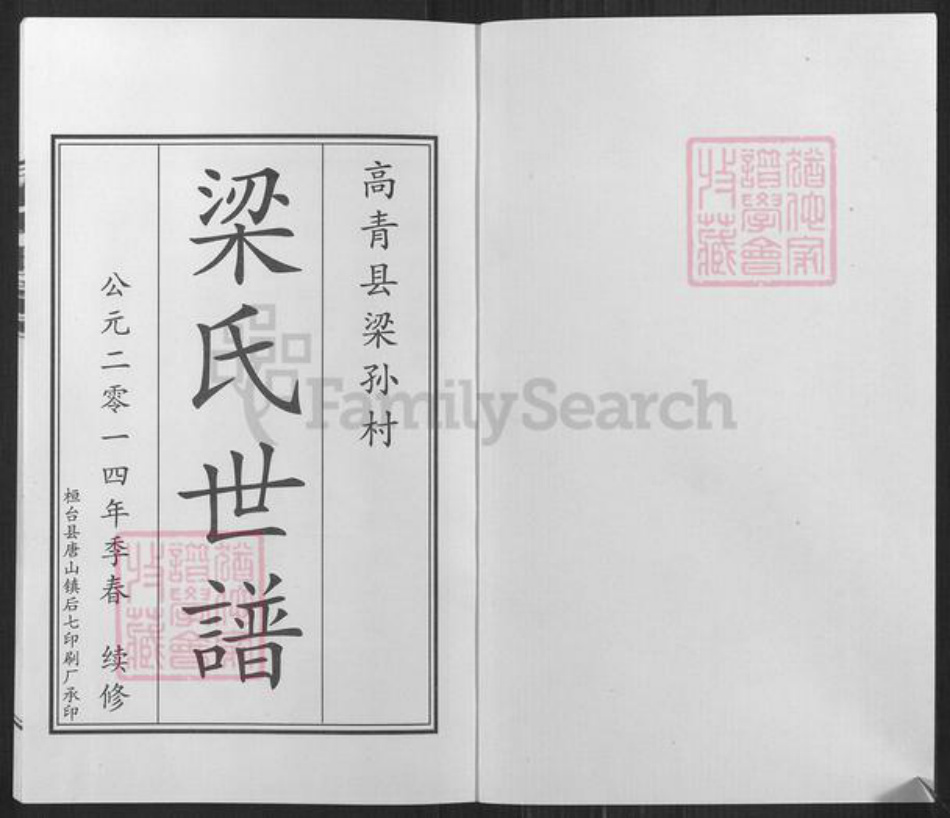 高青县梁孙村
梁氏世譜
公元二零一四年季春 续修
桓台县唐山镇后七印刷厂承印
猶他家
譜學會
收藏
猶他家
譜學會
收藏
FamilySearch